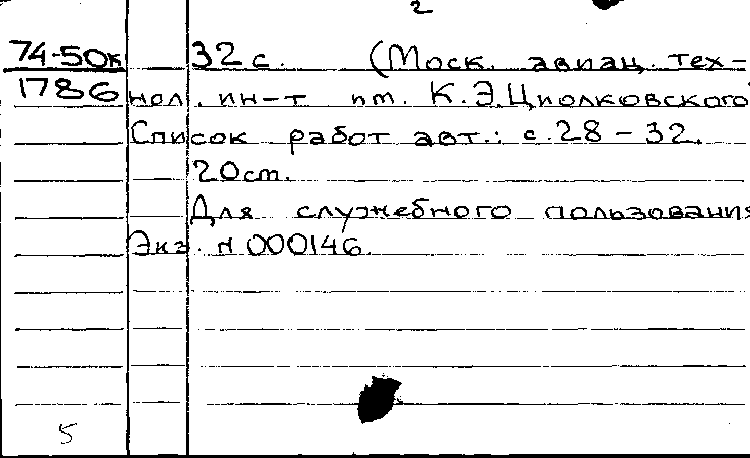 2
74-50к 32 с. (Моск. авиац. тех-
1786 нол. ин-т им. К.Э.Циолковского)
Список работ авт.: с. 28 - 32.
20 см.
Для служебного пользования
Экз. N 000146.
5